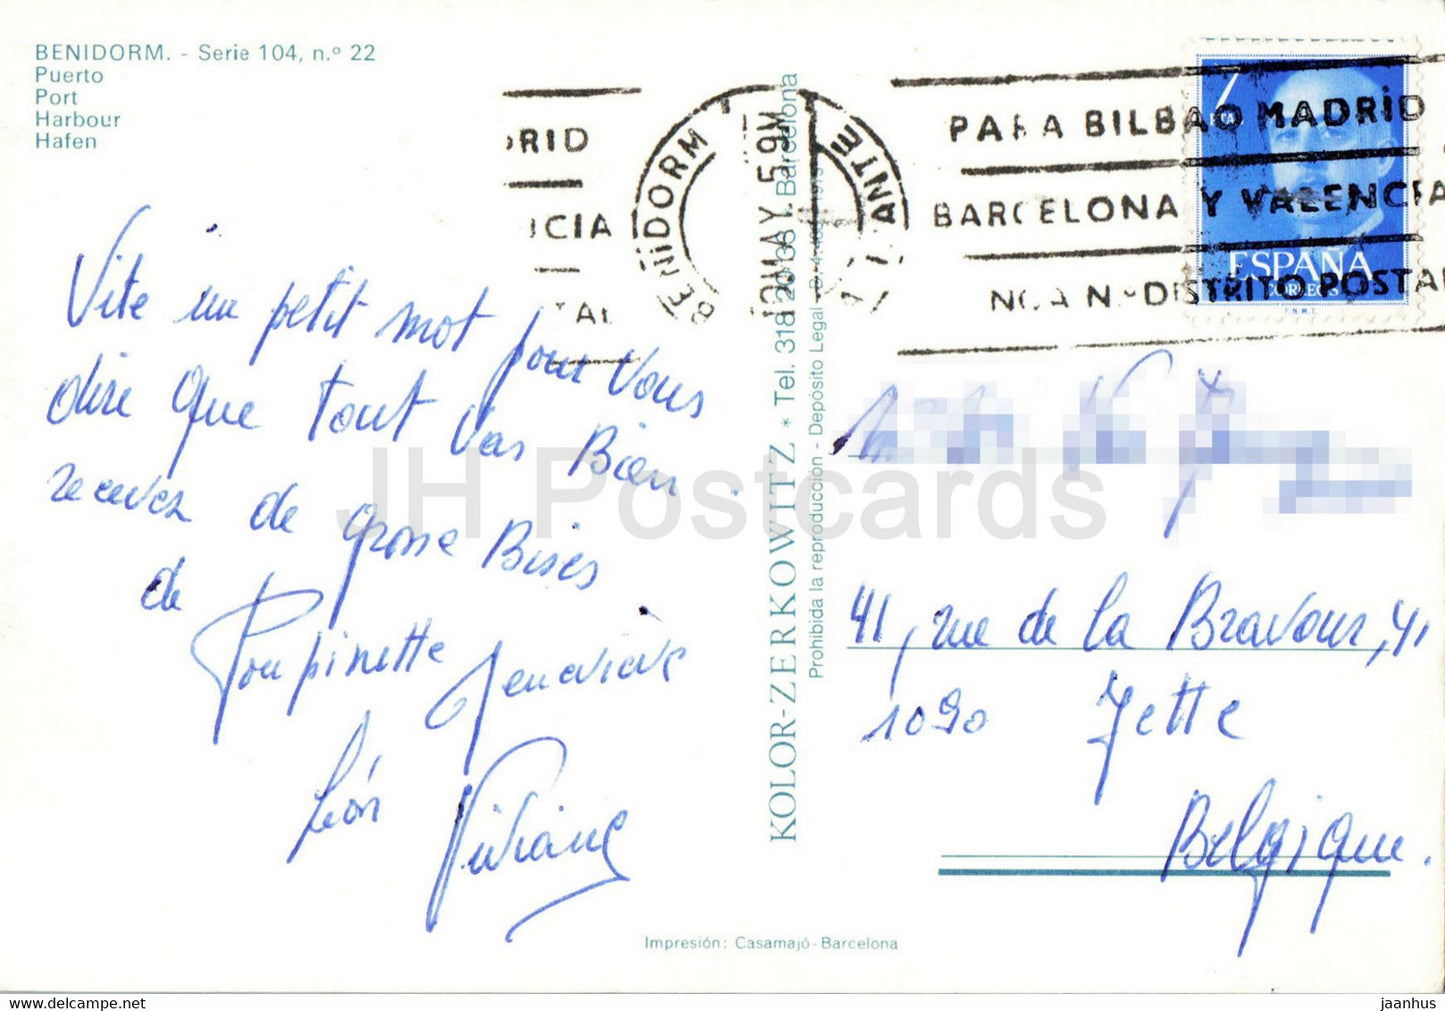 BENIDORM. - Serie 104, n.º 22
Puerto
Port
Harbour
Hafen
Vite un petit mot pour vous
dire que tout vas Bien.
recevez de grosse Bises
de Poupinette Geneviève
Léon Viviane
KOLOR-ZERKOWITZ * Tel. 318 20 36 - Barcelona
Prohibida la reproducción - Depósito Legal
BENIDORM
ALICANTE
PARA BILBAO MADRID
BARCELONA Y VALENCIA
DISTRITO POSTAL
7
PTA
ESPAÑA
CORREOS
F.N.M.T.
41, rue de la Bravour, 41
1090 Jette
Belgique.
Impresión: Casamajó-Barcelona
JH Postcards
jaanhus